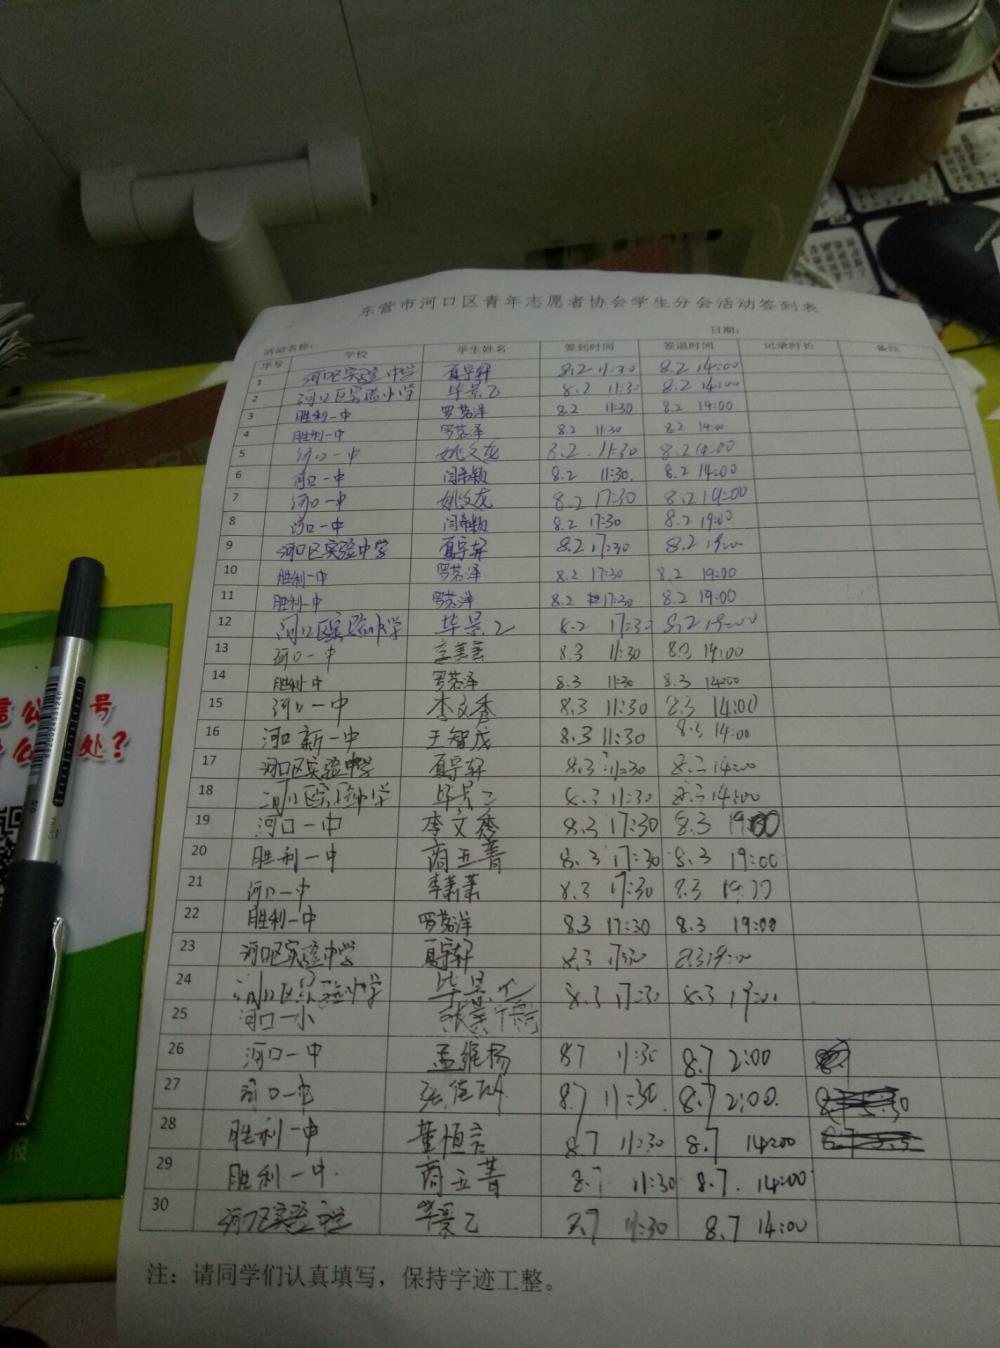 东营市河口区青年志愿者协会学生分会活动签到表
活动名称： 日期：
序号 学校 学生姓名 签到时间 签退时间 记录时长 备注
1 河口区实验中学 夏宇轩 8.2 11:30 8.2 14:00
2 河口区实验中学 毕景乙 8.2 11:30 8.2 14:00
3 胜利一中 罗茗洋 8.2 11:30 8.2 14:00
4 胜利一中 罗茗泽 8.2 11:30 8.2 14:00
5 河口一中 姚文龙 8.2 11:30 8.2 14:00
6 河口一中 闫希颖 8.2 11:30 8.2 14:00
7 河口一中 姚文龙 8.2 17:30 8.2 19:00
8 河口一中 闫希颖 8.2 17:30 8.2 19:00
9 河口区实验中学 夏宇轩 8.2 17:30 8.2 19:00
10 胜利一中 罗茗泽 8.2 17:30 8.2 19:00
11 胜利一中 罗茗洋 8.2 17:30 8.2 19:00
12 河口区实验中学 毕景乙 8.2 17:30 8.2 19:00
13 河口一中 8.3 11:30 8.3 14:00
14 胜利一中 罗茗泽 8.3 11:30 8.3 14:00
15 河口一中 李文秀 8.3 11:30 8.3 14:00
16 河口新一中 王智成 8.3 11:30 8.3 14:00
17 河口区实验中学 夏宇轩 8.3 11:30 8.3 14:00
18 河口区实验中学 毕景乙 8.3 11:30 8.3 14:00
19 河口一中 李文秀 8.3 17:30 8.3 19:00
20 胜利一中 商五菁 8.3 17:30 8.3 19:00
21 河口一中 李萧萧 8.3 17:30 8.3 19:00
22 胜利一中 罗茗洋 8.3 17:30 8.3 19:00
23 河口区实验中学 夏宇轩 8.3 17:30 8.3 19:00
24 河口区实验中学 毕景乙 8.3 17:30 8.3 19:00
25 河口一小
26 河口一中 孟维杨 8.7 11:30 8.7 2:00
27 河口一中 8.7 11:30 8.7 2:00
28 胜利一中 董恒言 8.7 11:30 8.7 14:00
29 胜利一中 商五菁 8.7 11:30 8.7 14:00
30 河口区实验中学 毕景乙 8.7 11:30 8.7 14:00
注：请同学们认真填写，保持字迹工整。
信公 号
处？
报